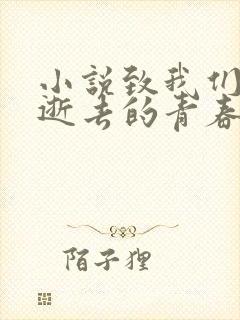 小说致我们
逝去的青春
陌子狸